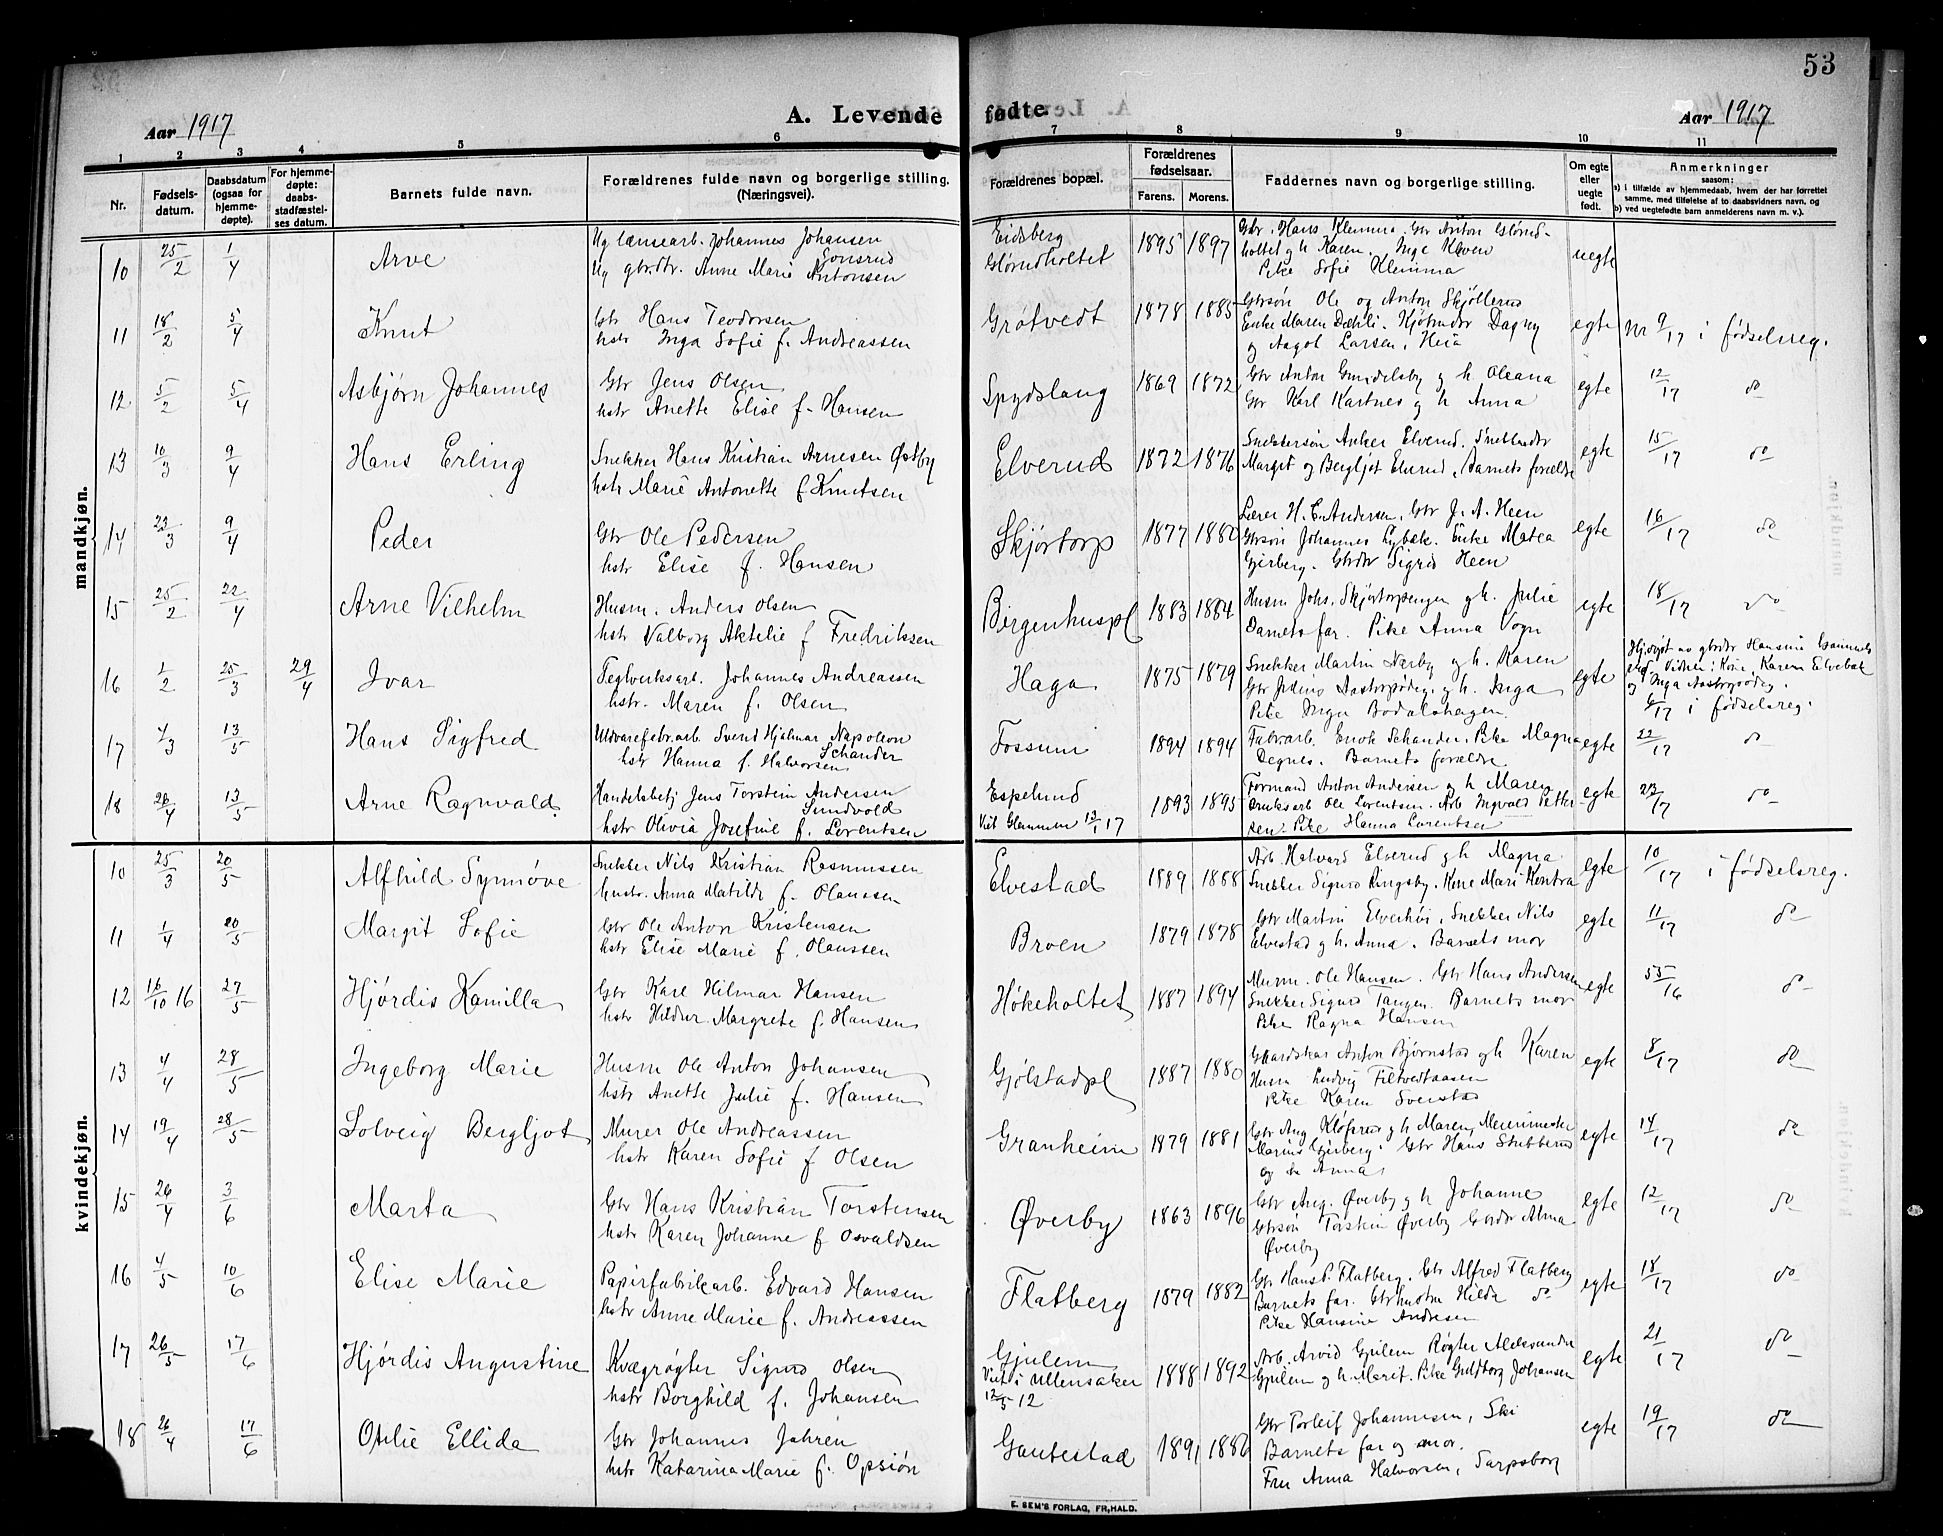 53
Aar 1917
A. Levende
fødte.
Aar 1917
1 2 3 4 5 6 7 8 9 10 11
Nr.
Fødsels-
datum.
Daabsdatum
(ogsaa for
hjemme-
døpte).
For hjemme-
døpte:
daabs-
stadfæstel-
ses datum.
Barnets fulde navn.
Forældrenes fulde navn og borgerlige stilling.
(Næringsvei).
Forældrenes bopæl.
Forældrenes
fødselsaar.
Farens. Morens.
Faddernes navn og borgerlige stilling.
Om egte
eller
uegte
født.
Anmerkninger
saasom:
a) i tilfælde av hjemmedaab, hvem der har forrettet
samme, med tilføielse af to daabsvidners navn, og
b) ved uegtefødte barn anmelderens navn m. v.).
mandkjøn.
10 25/2 1/4 Arve
Ug Johannes Johansen
Ug gbrdtr. Anne Marie Antonsen
Eidsberg
1895 1897
Gbr. Hans Klemma. Gbr Anton
holtet g h Karen. Inge
Pike Sofie Klemma
uegte
11 18/2 5/4 Knut
Gbr Hans Teodorsen
hstr Inga Sofie f. Andreassen
Grøtvedt
1878 1885
Gbrsøn Ole og Anton Skjøllerud
Enke Maren Dæhli. Dagny
og Aagot Larsen, Heia
egte
Nr 9/17 i fødselsreg.
12 5/2 5/4 Asbjørn Johannes
Gbr Jens Olsen
hstr Anette Elise f. Hansen
Spydslaug
1869 1872
Gbr Anton Gundelsby g h. Oleana
Gbr Karl Kartnes g h Anna
egte
12/17 do
13 10/3 9/4 Hans Erling
Snekker Hans Kristian Arnesen Østby
hstr Marie Antonette f Knutsen
Elverud
1872 1876
Snekkersøn Anker Elverud. Snekkerdtr
Margit og Bergljot Elverud, Barnets forældre
egte
15/17 do
14 23/3 9/4 Peder
Gbr Ole Pedersen
hstr Elise f. Hansen
Skjørtorp
1877 1880
Lærer H. C. Andersen, Gbr J. A. Heen
Gbrsøn Johannes Lybæk. Enke Matea
Gjerberg. Gbrdtr Sigrid Heen
egte
16/17 do
15 25/2 22/4 Arne Vilhelm
Husm. Anders Olsen
hstr Valborg Aktelie f Fredriksen
Birgenhuspl
1883 1884
Husm Johs. Skjørtorpengen g h. Julie
Barnets far. Pike Anna Vogn
egte
18/17 do
16 1/2 25/3 29/4 Ivar
Teglverksarb. Johannes Andreassen
hstr. Maren f. Olsen
Haga
1875 1879
Snekker Martin Nærby g h. Karen
g h. Inga
Pike Inga Bodalshagen
egte
Hj.døpt av gbrdtr Hansine
Karen Elvebak
og Inga
6/17 i fødselsreg.
17 4/3 13/5 Hans Sigfred
Uldvarefabr.arb. Svend Hjalmar Napoleon
Schander
hstr Hanna f. Halvorsen
Fossum
1894 1894
Fabrarb. Enok Schander. Pike Magna
Degnes. Barnets forældre
egte
22/17 do
18 26/4 13/5 Arne Ragnvald.
Handelsbetj Jens Torstein Andersen
Sundvold
hstr Olivia Josefine f. Lorentsen
Espelund
Viet Glemmen 13/1 17
1893 1895
Formand Anton Andersen g h Maren
Bruksarb Ole Lorentsen. Arb Ingvald Petter
sen. Pike Hanna Lorentsen
egte
27/17 do
kvindekjøn.
10 25/3 20/5 Alfhild Synnøve
Snekker Nils Kristian Rasmussen
hustr. Anna Matilde f. Olaussen
Elvestad
1889 1888
Arb Halvard Elverud g h Magna
Snekker Sigurd Ringsby. Kone Mari Kontra
egte
10/17 i fødselsreg.
11 1/4 20/5 Margit Sofie
Gbr Ole Anton Kristensen
hstr Elise Marie f. Olaussen
Broen
1879 1878
Gbr Martin Elverhøi, Snekker Nils
Elvestad g h. Anna. Barnets mor
egte
11/17 do
12 16/10 16 27/5 Hjørdis Kamilla
Gbr Karl Hilmar Hansen
hstr Hildur Margrete f. Hansen
Høkeholtet
1887 1894
Murm. Ole Hansen. Gbr Hans Andersen
Snekker Sigurd Tangen. Barnets mor
Pike Ragna Hansen
egte
55/16 do
13 4/4 28/5 Ingeborg Marie
Husm Ole Anton Johansen
hstr Anette Julie f. Hansen
Gjølstadpl
1887 1880
Gaardskar Anton Bjørnstad g h Karen
Husm Ludvig Filtvedtaasen
Pike Karen Sverstad
egte
8/17 do
14 19/4 28/5 Solveig Bergljot
Murer Ole Andreassen
hstr Karen Sofie f Olsen
Granheim
1879 1881
Gbr Aug Kløfrud g h Maren, Meierimester
Marius Gjerberg. Gbr Hans Stubberud
og Anna
egte
14/17 do
15 26/4 3/6 Marta
Gbr Hans Kristian Torstensen
hstr Karen Johanne f Osvaldsen
Øverby
1863 1896
Gbr Aug. Øverby g h Johanne
Gbrsøn Torstein Øverby Gbrdtr Alma
Øverby
egte
12/17 do
16 4/5 10/6 Elise Marie
Papirfabrikarb. Edvard Hansen
hstr Anne Marie f. Andreassen
Flatberg
1879 1882
Gbr Hans P. Flatberg. Gbr Alfred Flatberg
Barnets far. Gbrhustru Hilda do
Pike Hansine Andresen
egte
18/17 do
17 26/5 17/6 Hjørdis Augustine
Kvægrøgter Sigurd Olsen
hstr Borghild f. Johansen
Gjulem
Viet i Ullensaker
12/5 12
1888 1892
Arb. Arvid Gjulem Røgter Aleksander
Gjulem g h. Marit. Pike Guldborg Johansen
egte
21/17 do
18 26/4 17/6 Otilie Ellida
Gbr Johannes Jahren
hstr Katarina Marie f. Opsiøn
Gautestad
1891 1886
Gbr Torleif Johannesen, Ski
Barnets far og mor.
Fru Anna Halvorsen, Sarpsborg
egte
19/17 do
E. SEM'S FORLAG, FR,HALD.